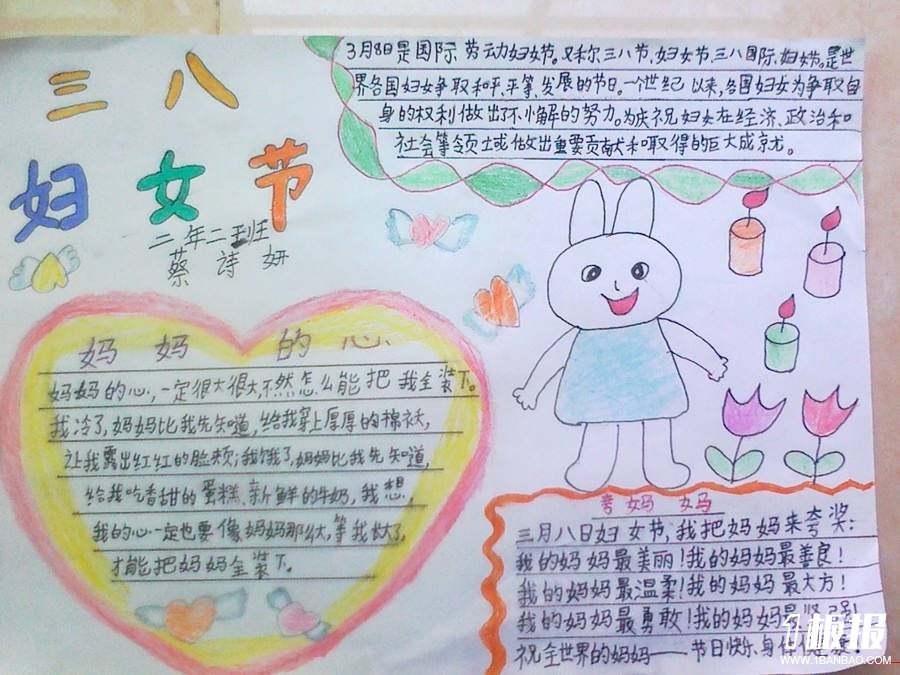 三八
妇女节
二年二班
蔡诗妍
3月8日是国际劳动妇女节。又称三八节、妇女节、三八国际妇女节。是世
界各国妇女争取和平、平等、发展的节日。一个世纪以来,各国妇女为争取自
身的权利做出了不懈的努力。为庆祝妇女在经济、政治和
社会等领域做出重要贡献和取得的巨大成就。
妈妈的心
妈妈的心,一定很大很大,不然怎么能把我全装下。
我冷了,妈妈比我先知道,给我穿上厚厚的棉衣,
让我露出红红的脸颊;我饿了,妈妈比我先知道,
给我吃香甜的蛋糕、新鲜的牛奶,我想,
我的心一定也要像妈妈那么大,等我长大了,
才能把妈妈全装下。
夸妈妈
三月八日妇女节,我把妈妈来夸奖:
我的妈妈最美丽!我的妈妈最善良!
我的妈妈最温柔!我的妈妈最大方!
我的妈妈最勇敢!我的妈妈最坚强!
祝全世界的妈妈——节日快乐身体健康!
板报
WWW.1BANBAO.COM